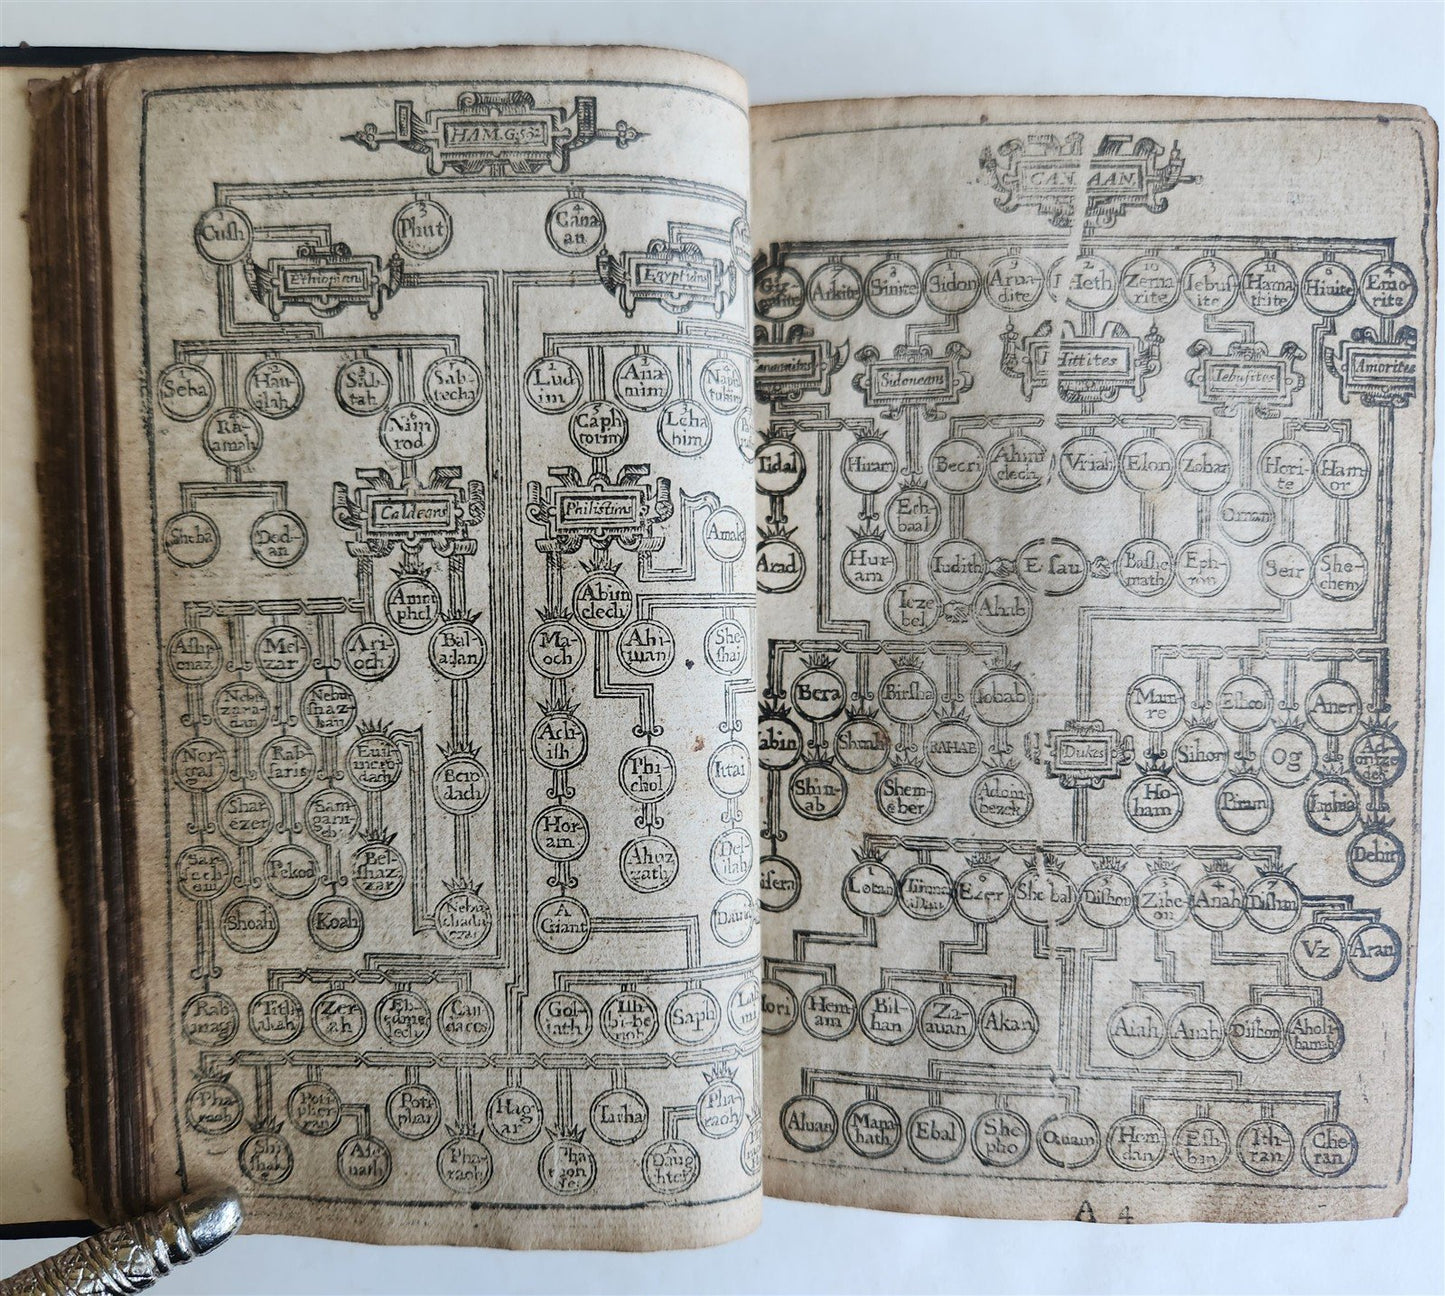 HAM. G: 5.32
3
Phut
4
Cana
an
Cush
Ethiopians
Egyptians
1
Seba
2
Hau-
ilah
3
Sab-
tah
5
Sab-
techa
Ra-
amah
6
Nim
rod
1
Lud
im
2
Ana
mim
Naph
tuhim
5
Caph
torim
3
Leha
bim
Sheba
Ded-
an
Caldeans
Philistims
Amra
phel
Abim
elech
Ashp
enaz
Mel-
zar
Ari-
och
Bal-
adan
Ma-
och
Ahi-
man
She-
shai
Nebu
zara-
dan
Nebu
shaz-
ban
Ner-
gal
Rab-
saris
Euil-
mero-
dach
Bero
dach
Achi-
ish
Phi-
chol
Ittai
Shar-
ezer
Sam-
gar-
neb
Hor-
am
Ahuz
zath
Del-
ilah
Sar-
sech
im
Pekod
Bel-
shaz-
zar
Shoah
Koah
Nebu
chadn
ezar
A
Giant
Rab
mag
Tirh-
akah
Zer-
ah
Eb
edme
lech
Can-
daces
Gol-
iath
Ish-
bi-be
nob
Saph
Pha-
raoh
Poti-
pher-
rah
Poti
phar
Hag-
ar
Iarha
Pha-
raoh
Shi
shak
Ase
nath
Pha-
raoh
Pha
raon
Daug
hter
CANAAN
Gir-
gasite
7
Arkite
8
Sinite
1
Sidon
9
Arua-
dite
2
Heth
10
Zema
rite
3
Iebus-
ite
11
Hama
thite
6
Hiuite
4
Emo-
rite
Sidoneans
Hittites
Iebusites
Amorites
Tidal
Hiram
Beeri
Ahim
elech
Vriah
Elon
Zohar
Hori-
te
Ham-
or
Eth-
baal
Ornan
Arad
Hur-
am
Iudith
Esau
Bashe
math
Eph-
ron
Seir
She-
chem
Ieze
bel
Ahab
Bera
Birsha
Iobab
Mam-
re
Eshcol
Aner
Iabin
RAHAB
Dukes
Sihon
Og
Ad-
onize
dek
Shin-
ab
Shem-
eber
Adoni-
bezek
Ho-
ham
Piram
Iaphia
Debir
Sisera
1
Lotan
6
Ezer
2
Shobal
5
Dishon
3
Zibe-
on
4
Anah
7
Dishan
Vz
Aran
Hori
Hem-
am
Bil-
han
Za-
auan
Akan
Aiah
Anah
Dishon
Aholi-
bamah
Aluan
Mana
hath
Ebal
She
pho
Onam
Hem-
dan
Esh-
ban
Ith-
ran
Che-
ran
A 4